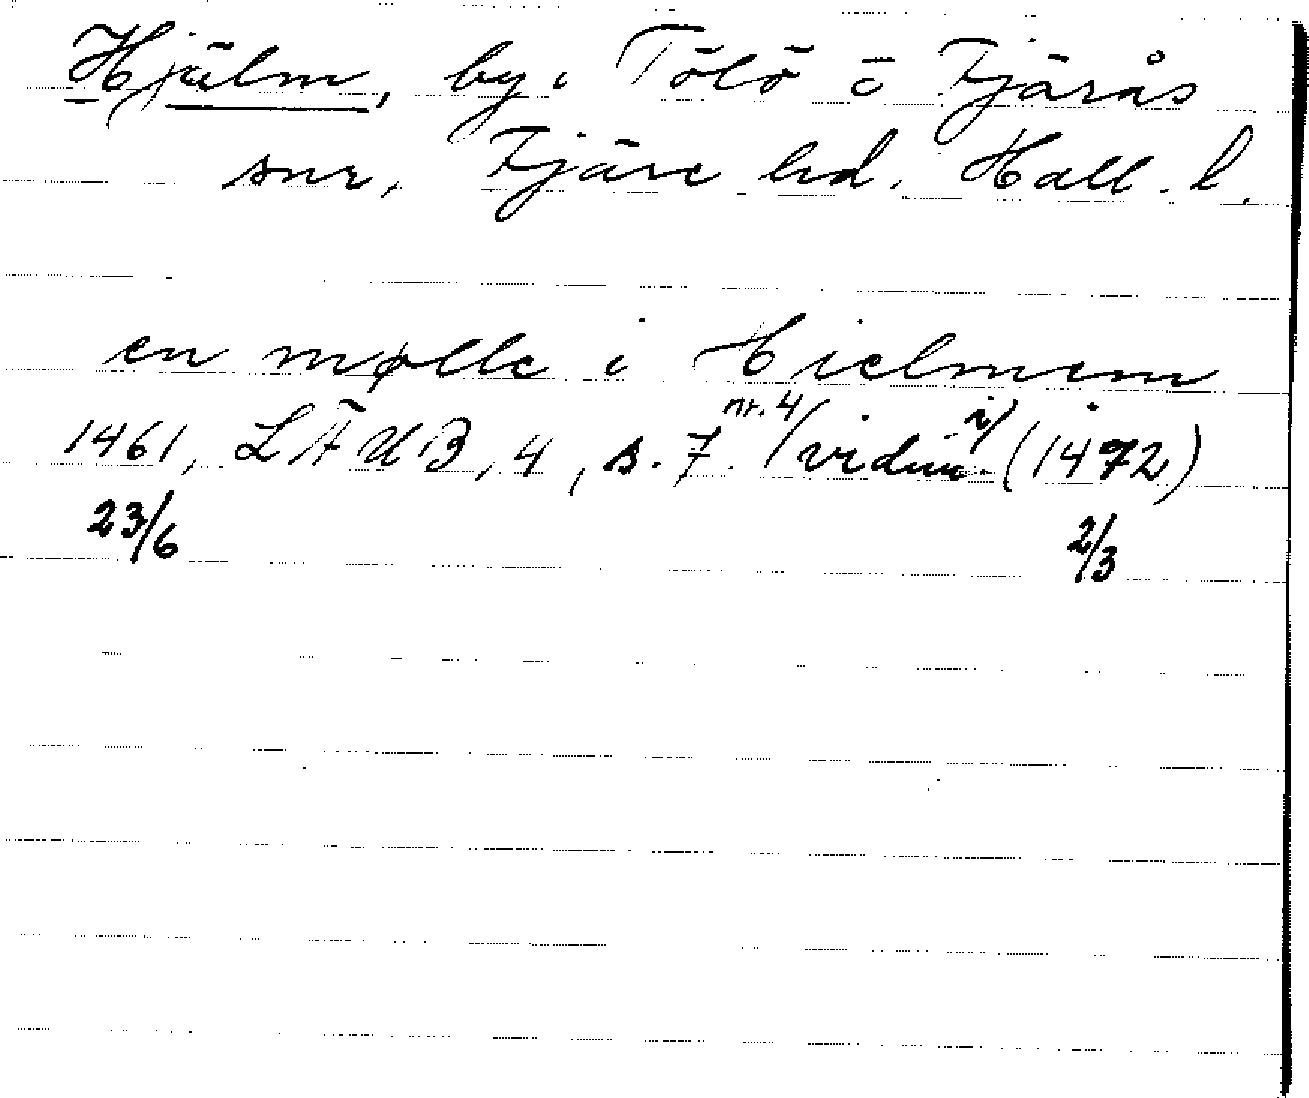 Hjälm, by i Tölö o Fjärås
snr, Fjäre hd. Hall. l.
en mølle i Hielmem
1461, LÄUB, 4, s. 7. nr. 4/vidim. i/(1472)
23/6 2/3